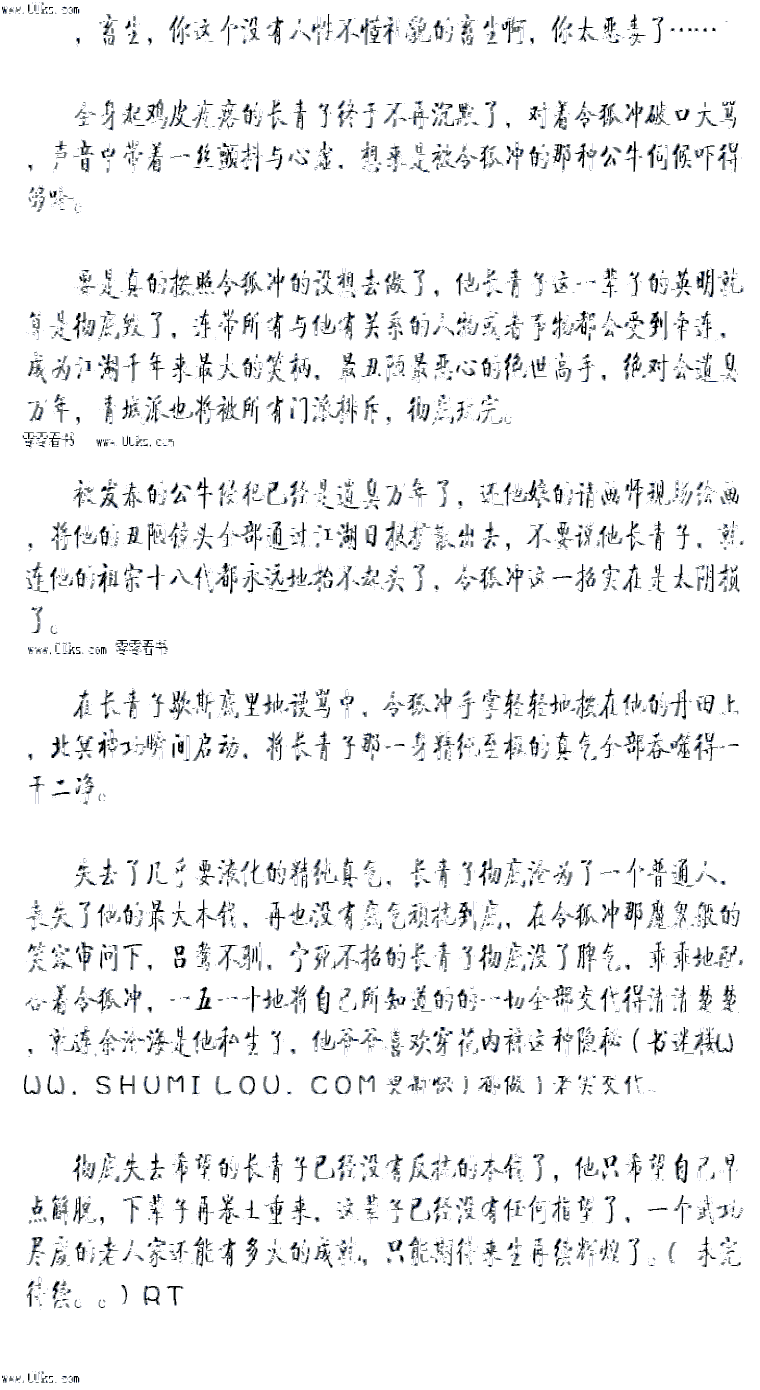 www.00ks.com
，畜生，你这个没有人性不懂礼貌的畜生啊，你太恶毒了……
全身起鸡皮疙瘩的长青子终于不再沉默了，对着令狐冲破口大骂
，声音中带着一丝颤抖与心虚，想来是被令狐冲的那种公牛伺候吓得
够呛。
要是真的按照令狐冲的设想去做了，他长青子这一辈子的英明就
算是彻底毁了，连带所有与他有关系的人物或者事物都会受到牵连，
成为江湖千年来最大的笑柄，最丑陋最恶心的绝世高手，绝对会遗臭
万年，青城派也将被所有门派排斥，彻底玩完。
零零看书 www.00ks.com
被发春的公牛侵犯已经是遗臭万年了，还他娘的请画师现场绘画
，将他的丑陋镜头全部通过江湖日报扩散出去，不要说他长青子，就
连他的祖宗十八代都永远地抬不起头了，令狐冲这一招实在是太阴损
了。
www.00ks.com 零零看书
在长青子歇斯底里地谩骂中，令狐冲手掌轻轻地按在他的丹田上
，北冥神功瞬间启动，将长青子那一身精纯至极的真气全部吞噬得一
干二净。
失去了几乎要液化的精纯真气，长青子彻底沦为了一个普通人，
丧失了他的最大本钱，再也没有底气顽抗到底，在令狐冲那魔鬼般的
笑容审问下，吕骜不驯，宁死不招的长青子彻底没了脾气，乖乖地配
合着令狐冲，一五一十地将自己所知道的的一切全部交代得清清楚楚
，就连余沧海是他私生子，他爷爷喜欢穿花内裤这种隐秘（书迷楼W
WW．SHUMILOU．COM更新快）都做了老实交代。
彻底失去希望的长青子已经没有反抗的本钱了，他只希望自己早
点解脱，下辈子再卷土重来，这辈子已经没有任何指望了，一个武功
尽废的老人家还能有多大的成就，只能期待来生再续辉煌了。（未完
待续。。）RT
www.00ks.com